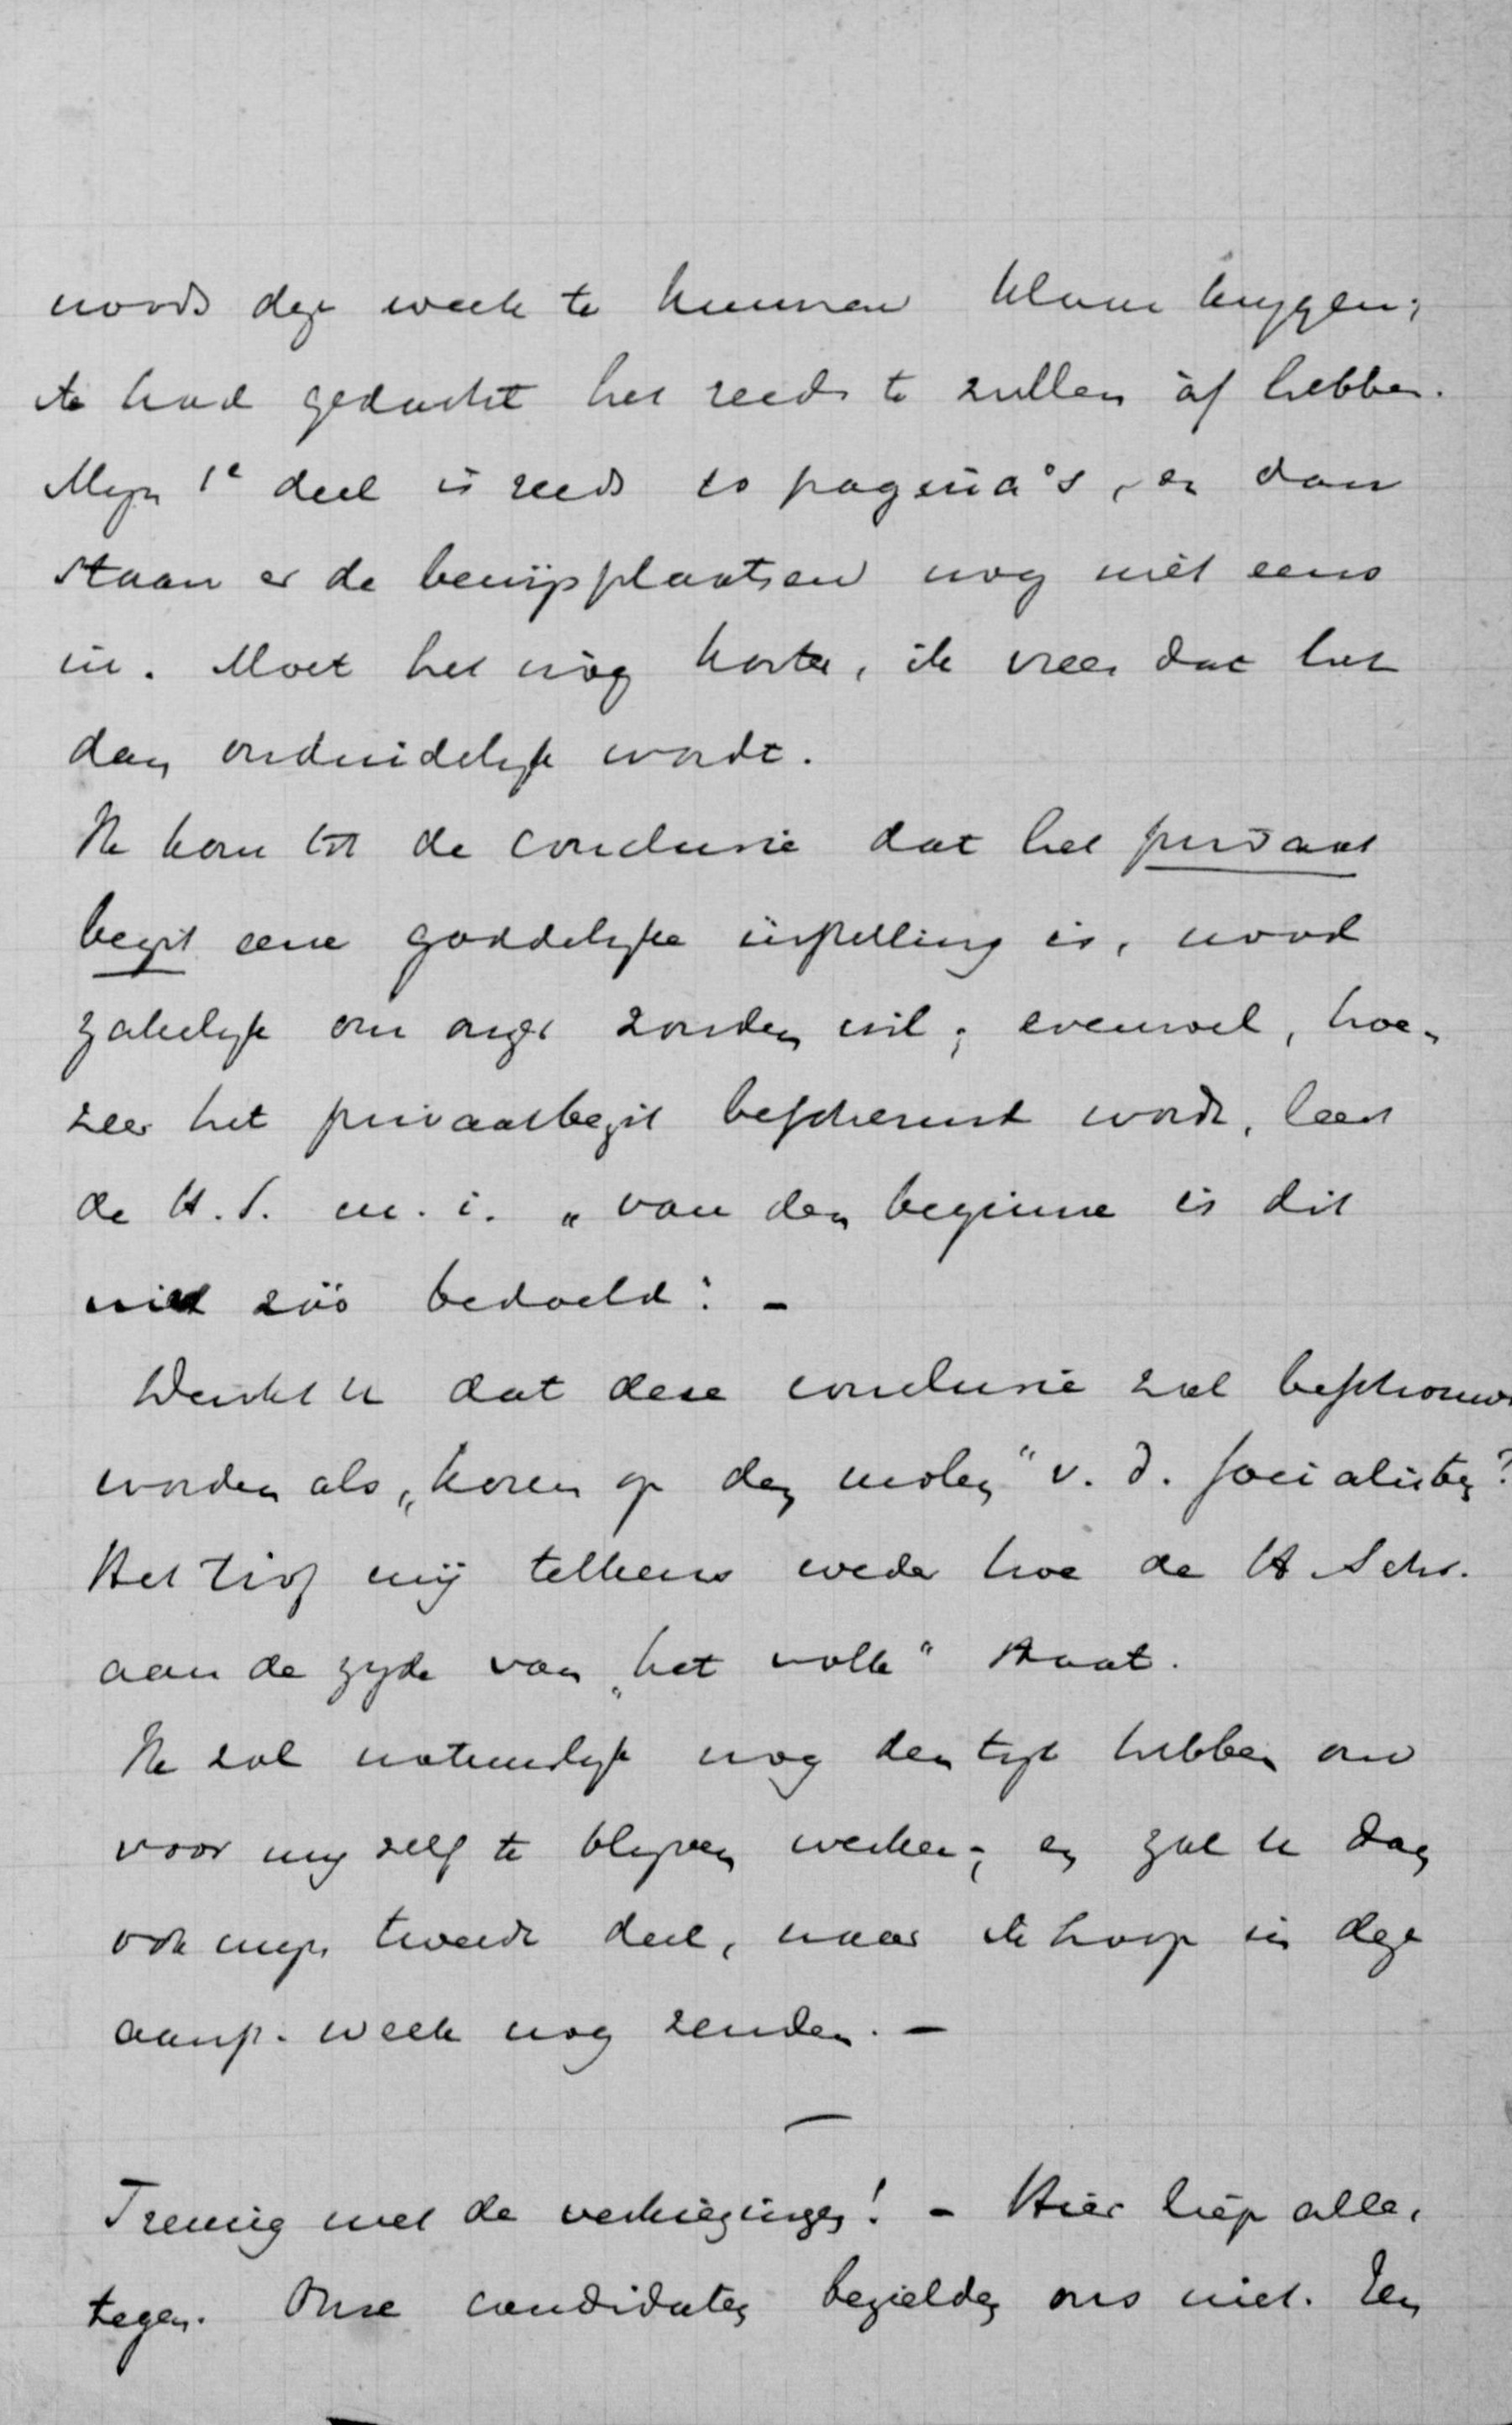 noods deze week te kunnen klaar krygen;
ik had gedacht het reeds te zullen àf hebben.
Myn 1e deel is reeds 10 pagina's, en dan
staan er de bewijsplaatsen nog niet eens
in. Moet het nòg korter, ik vrees dat het
dan onduidelyk wordt.
Ik kom tot de conclusie dat het privaat
bezit eene goddelyke instelling is, nood
zakelyk om onze zonden wil; evenwel, hoe-
zeer het privaatbezit beschermt wordt, leert
de H.S. m.i. „van den beginne is dit
niet zóó bedoeld". -
Denkt U dat deze conclusie zal beschouwd
worden als „koren op den molen" v. d. socialisten?
Het trof mij telkens weder hoe de H Schr.
aan de zyde van „het volk" staat.
Ik zal natuurlyk nog den tyd hebben om
voor my zelf te blyven werken; en zal U dan
ook myn tweede deel, naar ik hoop in deze
aanst. week nog zenden. -
Treurig met de verkiezingen! - Hier liep alles
tegen. Onze candidaten bezielden ons niet. Een